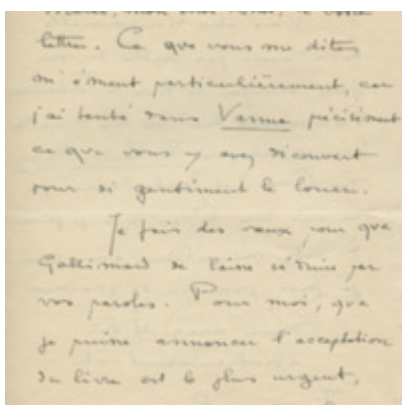 lettre. Ce que vous me dites
m'émeut particulièrement, car
j'ai tenté dans Varma précisément
ce que vous y avez découvert
pour si gentiment le louer.
Je fais des vœux pour que
Gallimard se laisse séduire par
vos paroles. Pour moi, que
je puisse annoncer l'acceptation
du livre est le plus urgent,